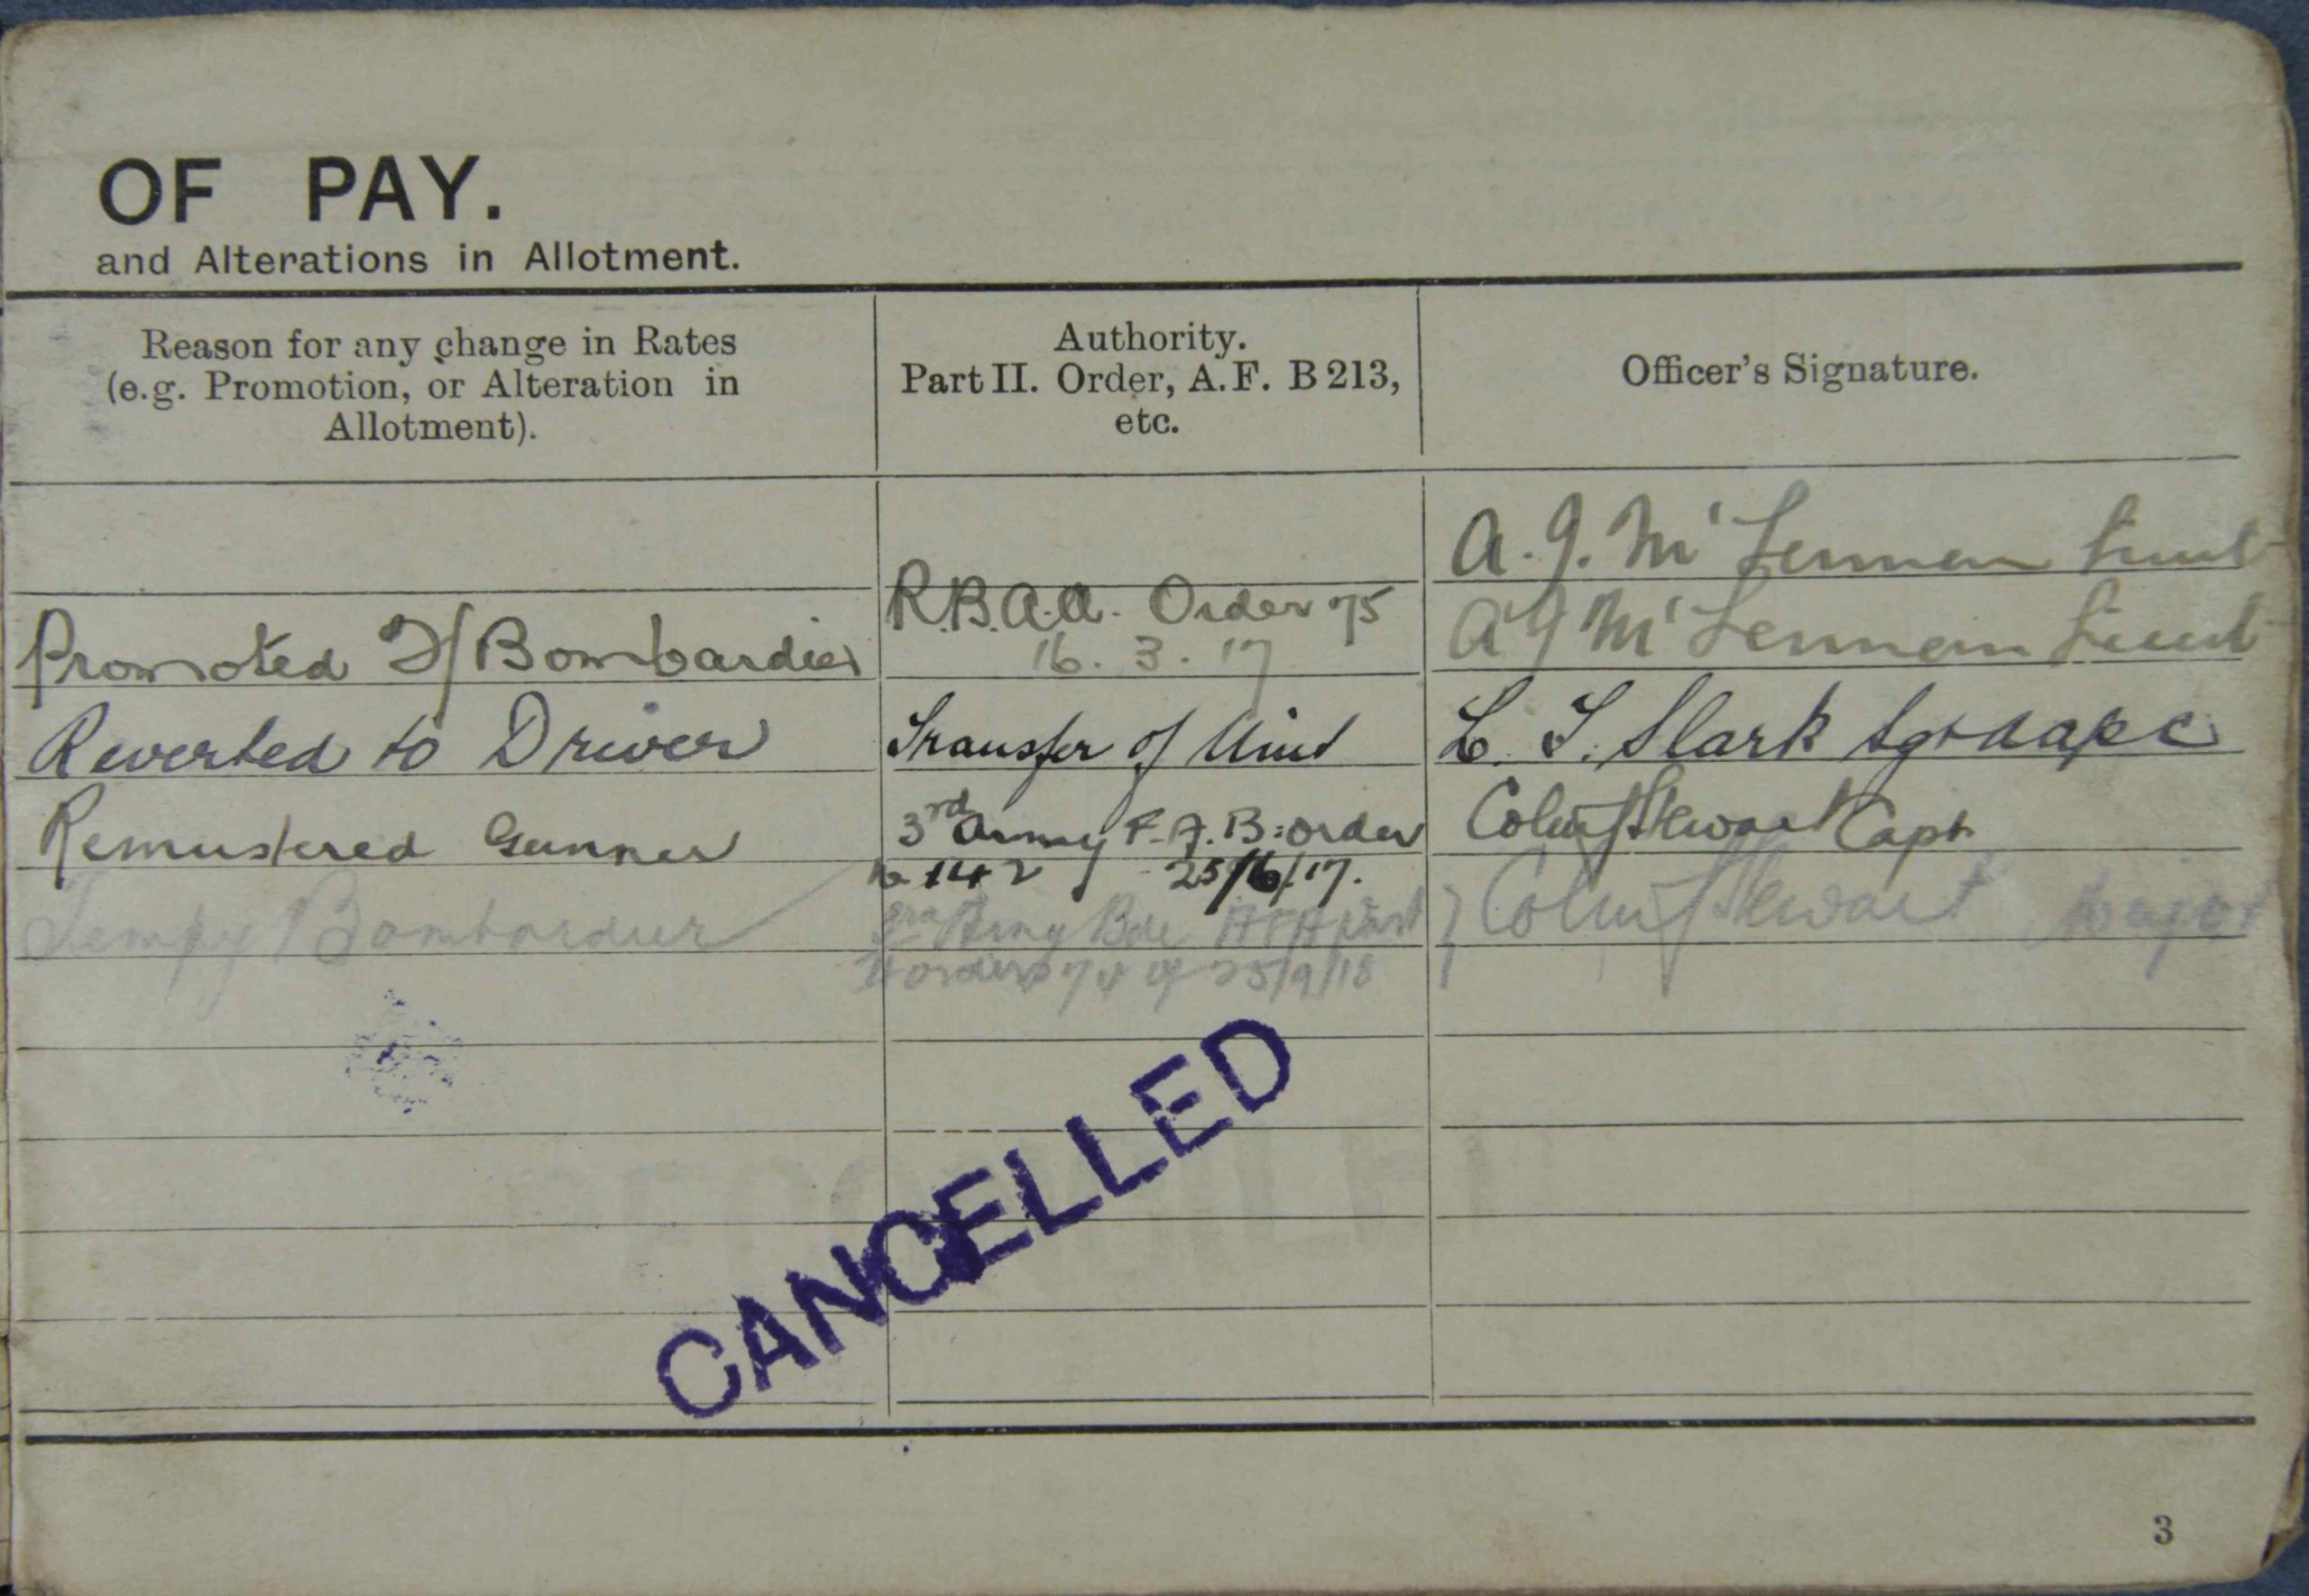 OF PAY.
and Alterations in Allotment.
Reason for any change in Rates
(e.g. Promotion, or Alteration in
Allotment).
Authority.
Part II. Order, A.F. B 213,
etc.
Officer's Signature.
A. J. McLennan Lieut
Promoted T/Bombardier
R.B.A.A. Order 75
16. 3. 17
A J McLennan Lieut
Reverted to Driver
Transfer of Unit
L. T. Slark Sgt aapc
Remustered Gunner
3rd Army F.A.B: order
No 142 25/6/17.
Colin Stewart Capt
Tempy Bombardier
3rd Army Bde AFA part
II orders 74 of 25/9/18
Colin Stewart Major
CANCELLED
3